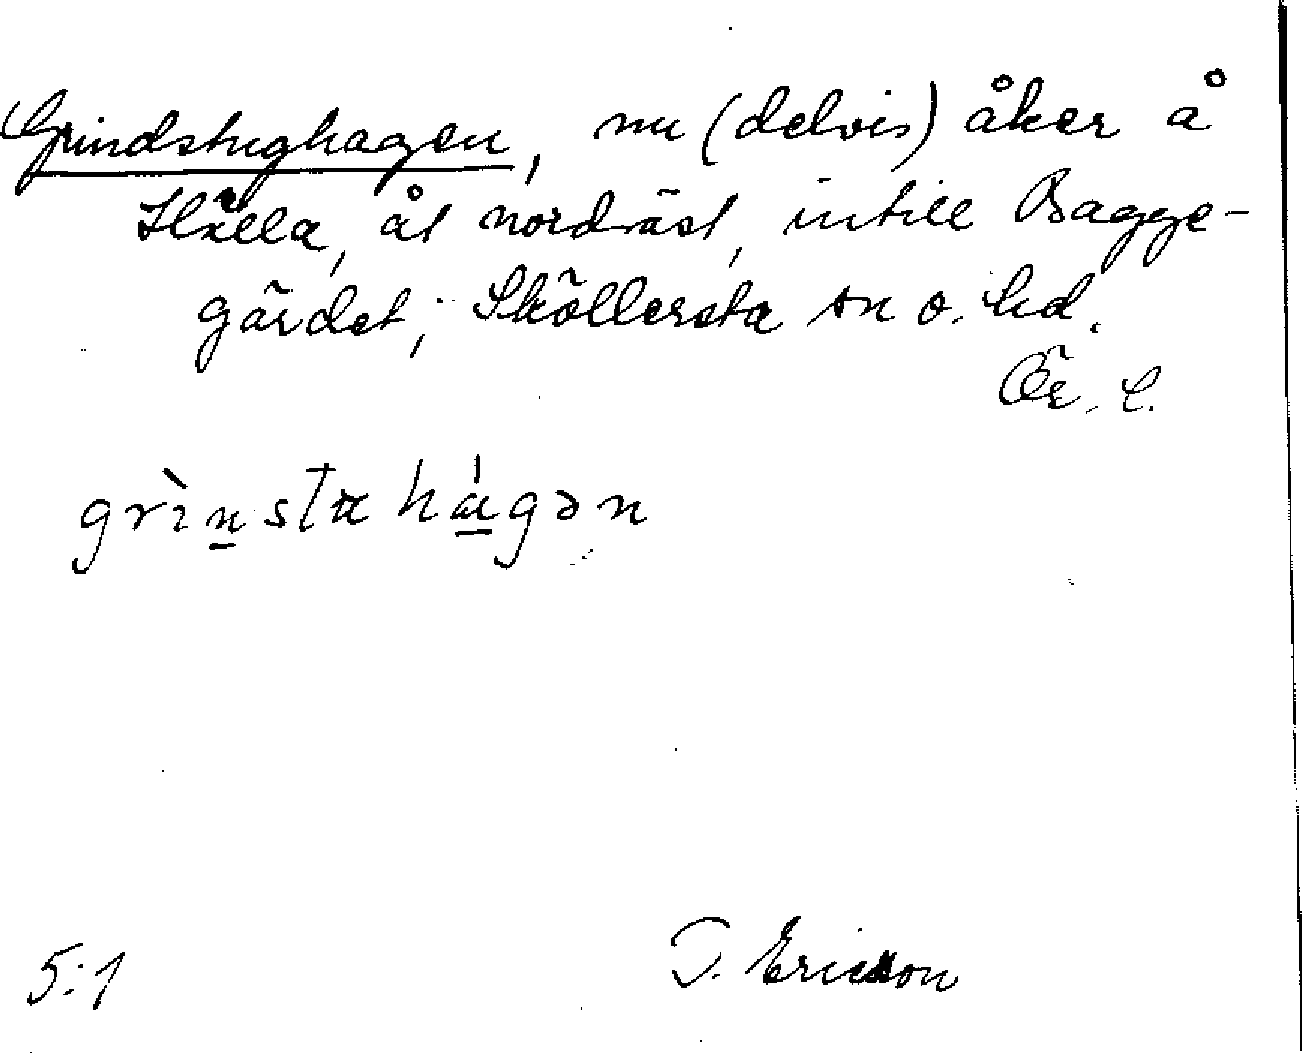 Grindstughagen, nu (delvis) åker å
Hälla, åt nordväst, intill Bagge-
gärdet; Sköllersta sn o. hd.
Ör. l.
grìn̲sta há̲gən
5:1 T. Ericsson